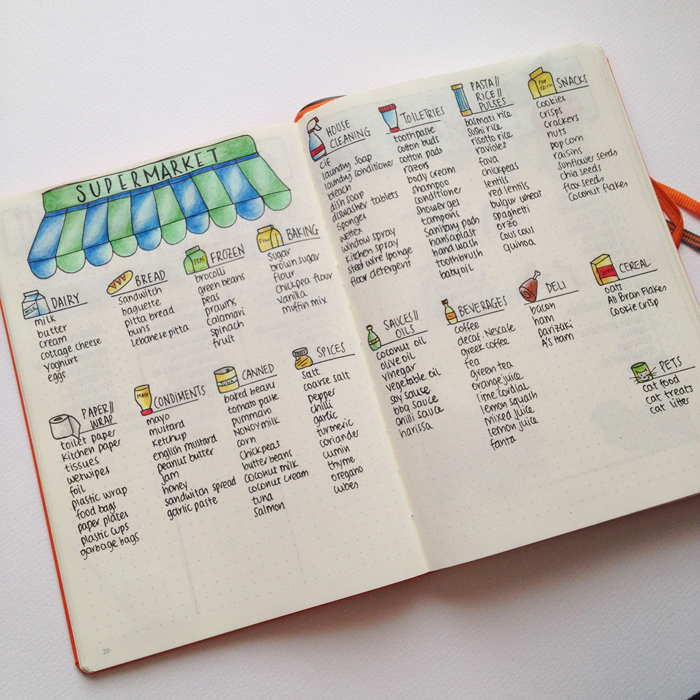 SUPERMARKET
DAIRY
milk
butter
cream
cottage cheese
yoghurt
eggs
BREAD
sandwitch
baguette
pitta bread
buns
lebanese pitta
FROZEN
brocolli
green beans
peas
prawns
calamari
spinach
fruit
BAKING
sugar
brown sugar
flour
chickpea flour
vanilla
muffin mix
PAPER//
WRAP
toilet paper
kitchen paper
tissues
wetwipes
foil
plastic wrap
food bags
paper plates
plastic cups
garbage bags
CONDIMENTS
mayo
mustard
ketchup
english mustard
peanut butter
jam
honey
sandwitch spread
garlic paste
CANNED
baked beans
tomato paste
pummaro
NOYNOY milk
corn
chickpeas
butter beans
coconut milk
coconut cream
tuna
salmon
SPICES
salt
coarse salt
pepper
chilli
garlic
turmeric
coriander
cumin
thyme
oregano
cubes
HOUSE
CLEANING
cif
laundry soap
laundry conditioner
bleach
dish soap
diswasher tablets
sponges
wettex
window spray
kitchen spray
steel wire sponge
floor detergent
TOILETRIES
toothpaste
cotton buds
cotton pads
razors
body cream
shampoo
conditioner
showergel
tampons
sanitary pads
hansaplast
hand wash
toothbrush
baby oil
PASTA//
RICE//
PULSES
basmati rice
sushi rice
risotto rice
fava
chickpeas
lentils
red lentils
bulgur wheat
spaghetti
orzo
cous cous
quinoa
SNACKS
cookies
crisps
crackers
nuts
pop corn
raisins
sunflower seeds
chia seeds
flax seeds
coconut flakes
SAUCES//
OILS
coconut oil
olive oil
vinegar
vegetable oil
soy sauce
bbq sauce
chilli sauce
harissa
BEVERAGES
coffee
decaf. Nescafe
greek coffee
tea
green tea
orange juice
lime cordial
lemon squash
mixed juice
lemon juice
fanta
DELI
bacon
ham
parizaki
A's Ham
CEREAL
oats
All Bran Flakes
Cookie Crisp
PETS
cat food
cat treats
cat litter